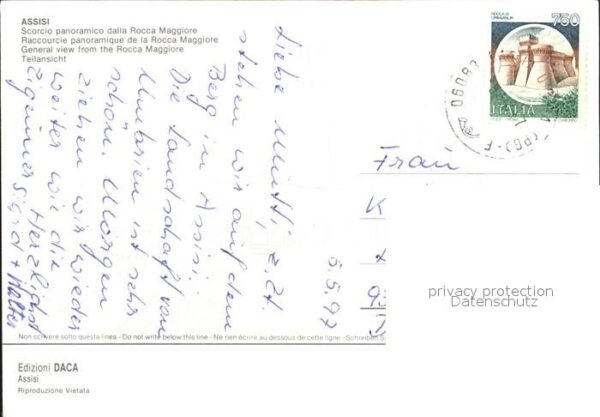 ASSISI
Scorcio panoramico dalla Rocca Maggiore
Raccourcie panoramique de la Rocca Maggiore
General view from the Rocca Maggiore
Teilansicht
ROCCA DI
URBISAGLIA
750
ITALIA
06083
(PG)
5.5.97
Liebe Mutti, z. Zt.
stehen wir auf dem
Berg in Assisi.
Die Landschaft von
Umbrien ist sehr
schön. Morgen
ziehen wir wieder
weiter wie die
Zigeuner. Herzlichst
Sigrid + Walter
Frau
K
privacy protection
Datenschutz
Non scrivere sotto questa linea - Do not write below this line - Ne rien écrire au-dessous de cette ligne - Schreiben S
Edizioni DACA
Assisi
Riproduzione Vietata